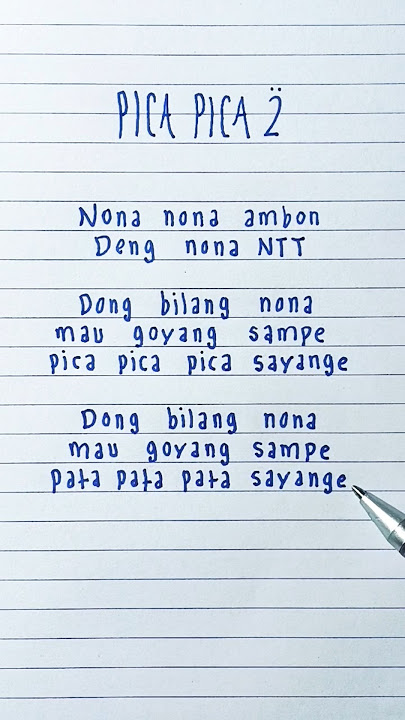 PICA PICA 2
Nona nona ambon
Deng nona NTT
Dong bilang nona
mau goyang sampe
pica pica pica sayange
Dong bilang nona
mau goyang sampe
pata pata pata sayange